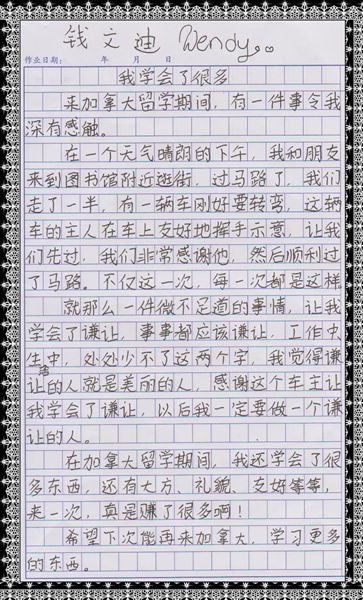 钱文迪 Wendy。。
作业日期: 年 月 日
我学会了很多
来加拿大留学期间，有一件事令我
深有感触。
在一个天气晴朗的下午，我和朋友
来到图书馆附近逛街，过马路了，我们
走了一半，有一辆车刚好要转弯，这辆
车的主人在车上友好地挥手示意，让我
们先过，我们非常感谢他，然后顺利过
了马路。不仅这一次，每一次都是这样
就那么一件微不足道的事情，让我
学会了谦让，事事都应该谦让，工作中
生活中，处处少不了这两个字，我觉得谦
让的人就是美丽的人，感谢这个车主让
我学会了谦让，以后我一定要做一个谦
让的人。
在加拿大留学期间，我还学会了很
多东西，还有大方、礼貌、友好等等，
来一次，真是赚了很多啊！
希望下次能再来加拿大，学习更多
的东西。